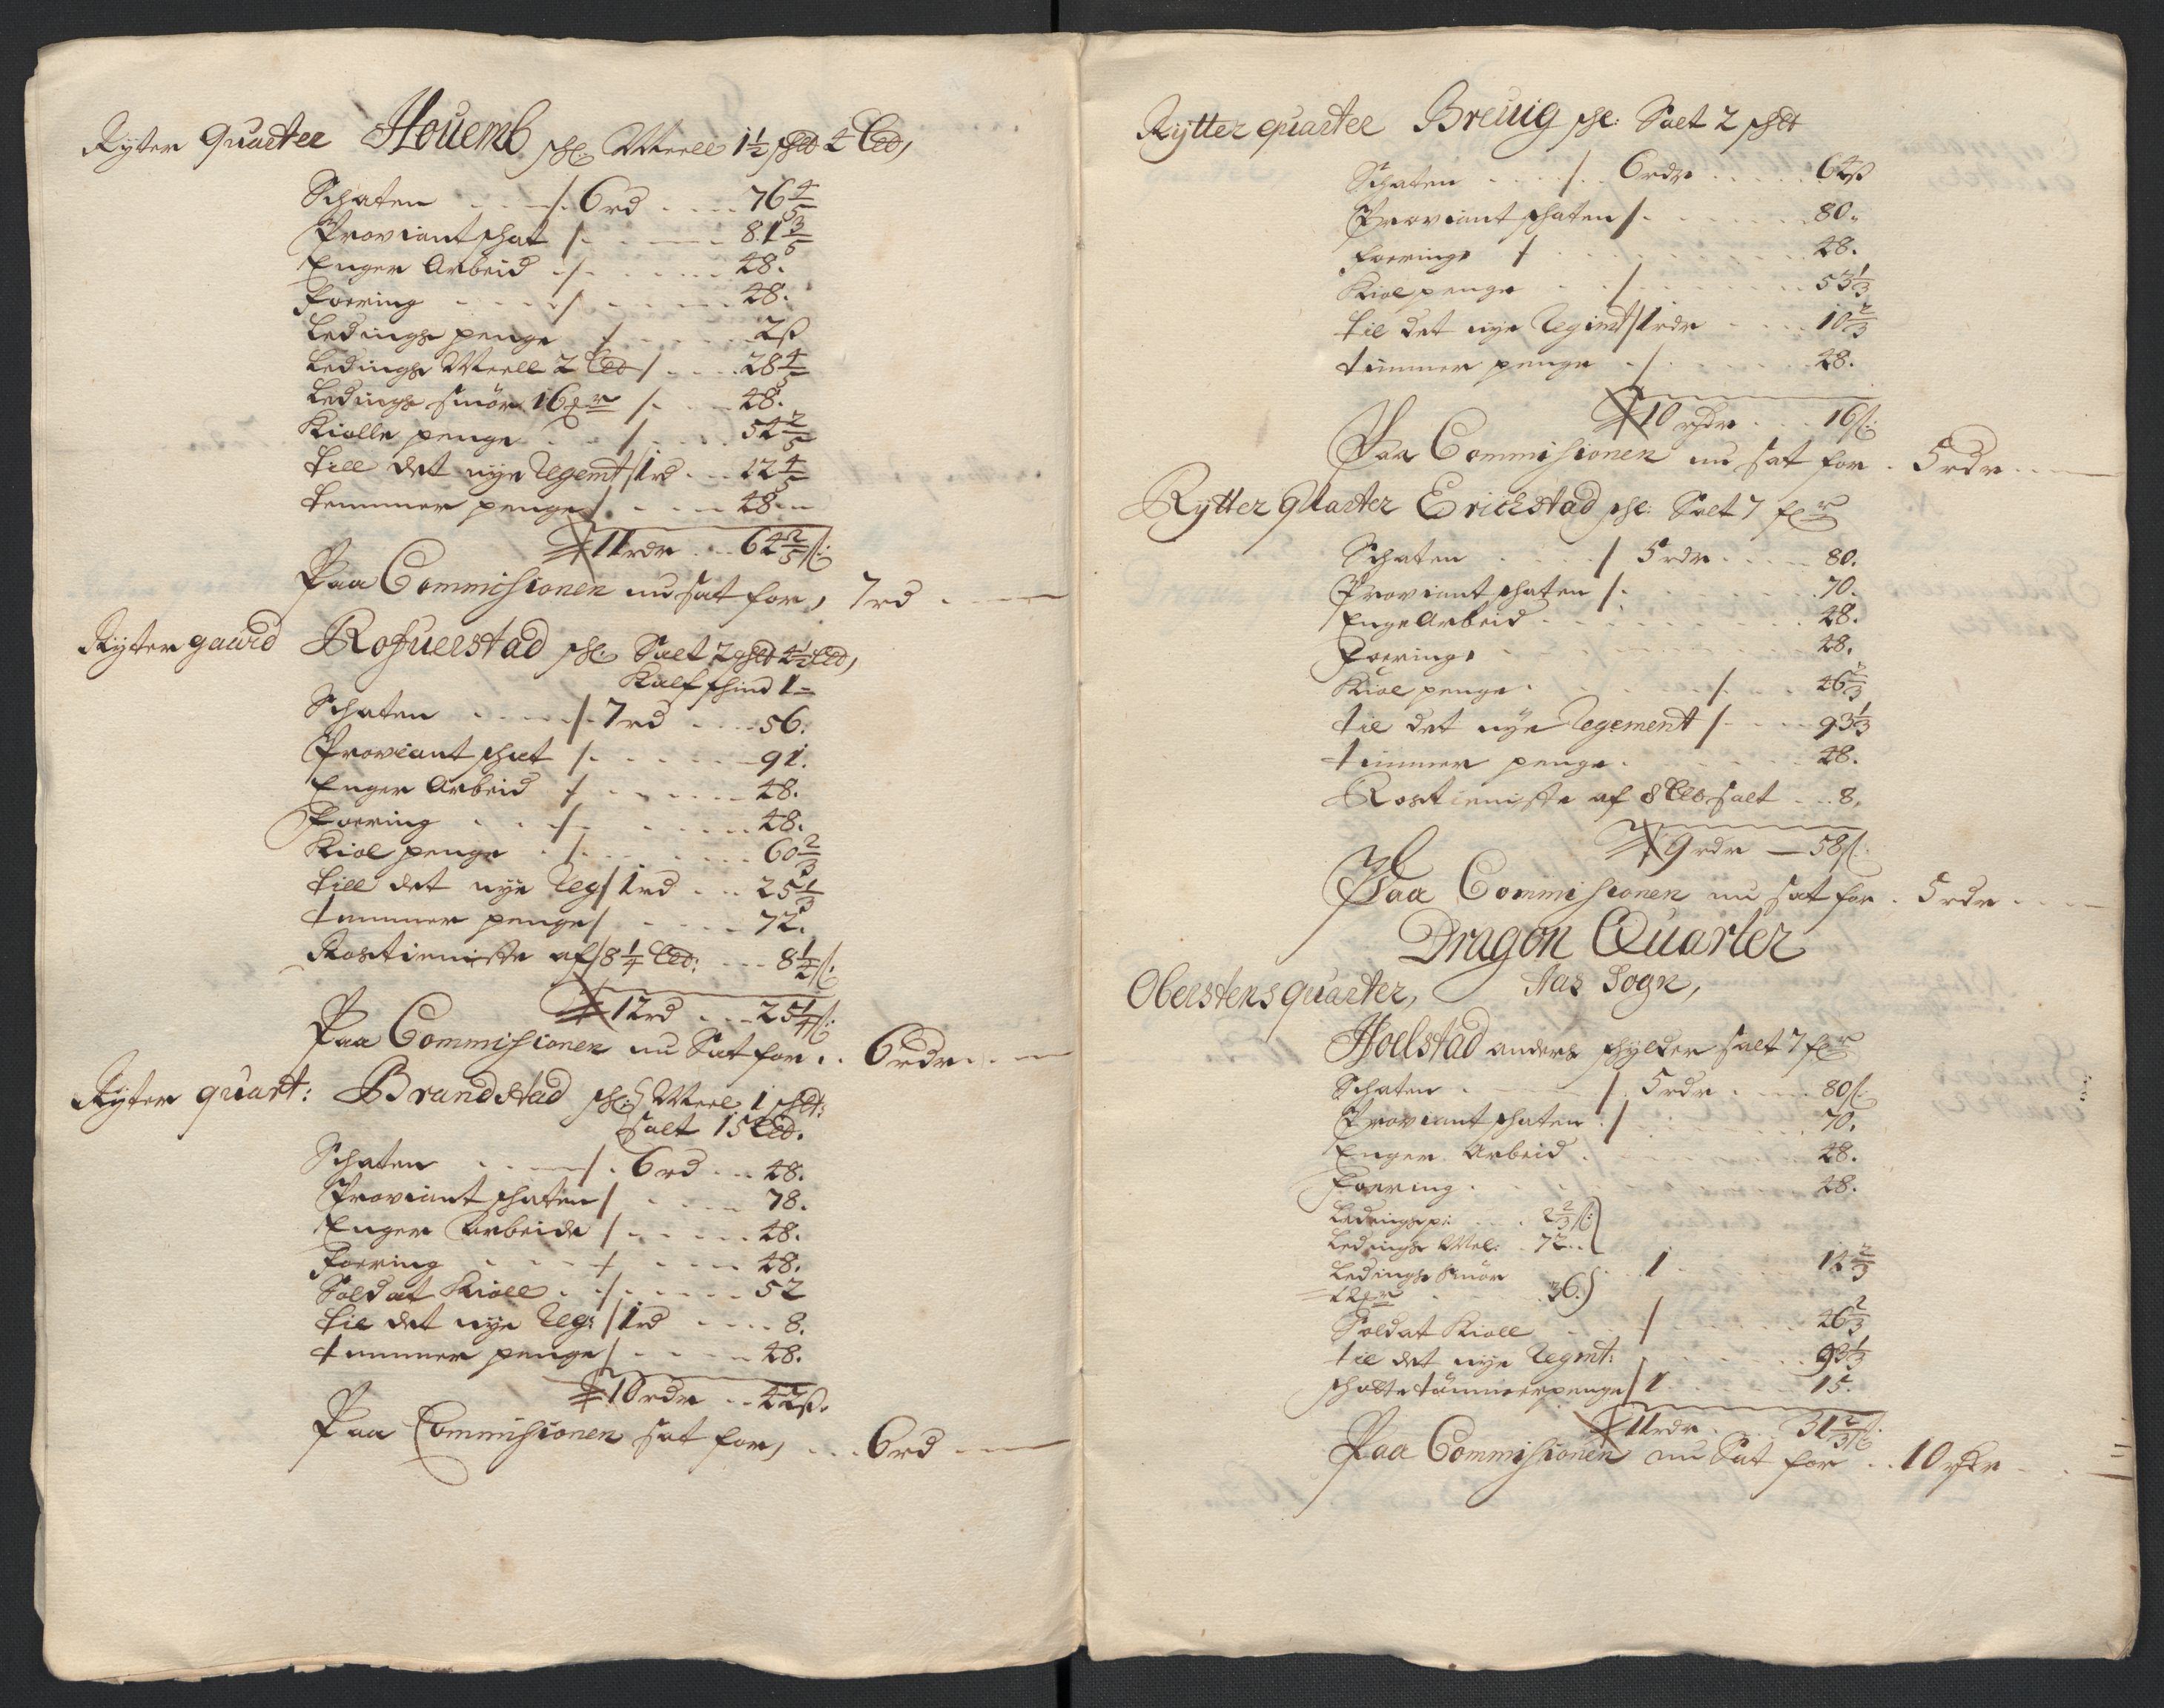 Ryter Quarter Houemb schl. Meell 1½ schl 4 lid,
Schaten . . . /. 6rd . . . 76 4/5
Proviant schat /. . . . 81 3/5
Enger Arbeid ./. . . . 48.
Foering . . . . /. . . . 48.
Ledings penge / . . . . 2ß
Ledings Meell 2 lid / . . . 28 4/5
Ledings smör 16 mr /. . . 48.
Kiolle penge . . . / . . . 54 2/5
till det nye Regemt /1rd . . . 12 4/5
temmer penge /. . . . 48.
11rdr . . . 64 2/5 ß:
Paa Commissionen nu sat for, 7rd . . .
Rytergaard Rosuerstad schl. Salt 2 schl 4½ lid,
Kalfschind 1 =
Schaten . . . . /. 7rd . . . 56.
Proviant schat /. . . . 91.
Enger Arbeid / . . . . 48.
Foering . . . /. . . . 48.
Kiol penge . /. . . . 60 2/3
till det nye Reg / 1rd . . . 25 1/3
temmer penge / . . . . 72.
Rostieniste af / 8¼ lid: . . . 8½ ß.
12rd . . . 25 1/4 ß:
Paa Commissionen nu Sat for . . 6rdr . . .
Ryter quart: Brandstad schl. Meel 1 schlt:
Salt 15 lid.
Schaten . . . . /. 6rd . . . 48.
Proviant schaten / . . . . 78.
Enger Arbeide / . . . . 48.
Foering . . . . / . . . . 48.
Soldat Kioll . . /. . . . 52
til det nye Reg: / 1rd . . . . 8.
temmer penge / . . . . 48.
10rdr . . 42ß.
Paa Commissionen sat for, . . . 6rd . . .
Rytter quarter Breuig schl: Salt 2 schlt
Schaten . . . . /. . 6rdr . . . . 64ß
Proviant schaten /. . . . . 80.
foering / . . . . . 48.
Kiol penge . . / . . . . 53 1/3
til det nye Regimt / 1rdr . . . . 10 2/3
timmer penge . / . . . . 48.
10 rdr . . . 16ß:
Paa Commissionen nu sat for . 5rdr . . .
Rytter Quarter Erichstad schl: Salt 7 fr
Schaten . . . . / 5rdr . . . . 80.
Proviant schaten /. . . . . 70.
Enge Arbeid . . . . . . 48.
Foering . . . . . . . 48.
Kiol penge . . . . /. . . 46 2/3
til det nye Regement / . . . . 93 1/3
timmer penge . . . . . 48.
Rostieniste af 8 lid salt . . . 8.
9rdr — 58ß:
Paa Commissionen nu sat for . 5rdr . . . .
Dragon Quarter
Oberstens quarter, Aas Sogn,
Hoelstad anders schylder salt 7 fr
Schaten . . . . /. 5rdr . . . . 80ß:
Proviant schaten . / . . . . . 70.
Enger Arbeid . . . . . . 48.
Foering . . . . . . . 48.
Ledings p: . . . 2 2/3 ß:
Ledings Mel: . 72 . .
Ledings Smör . . 1 . . . . 14 2/3
12 mr . . . . 36.
Soldat Kioll . . . / . . . . 46 2/3
til det nye Regmt: . . . . . 93 1/3
schatte tömmer penge / 1 . . . . 15.
11rdr . . . 31 2/3 ß:
Paa Commissionen nu Sat for . . 10 rdr . . .